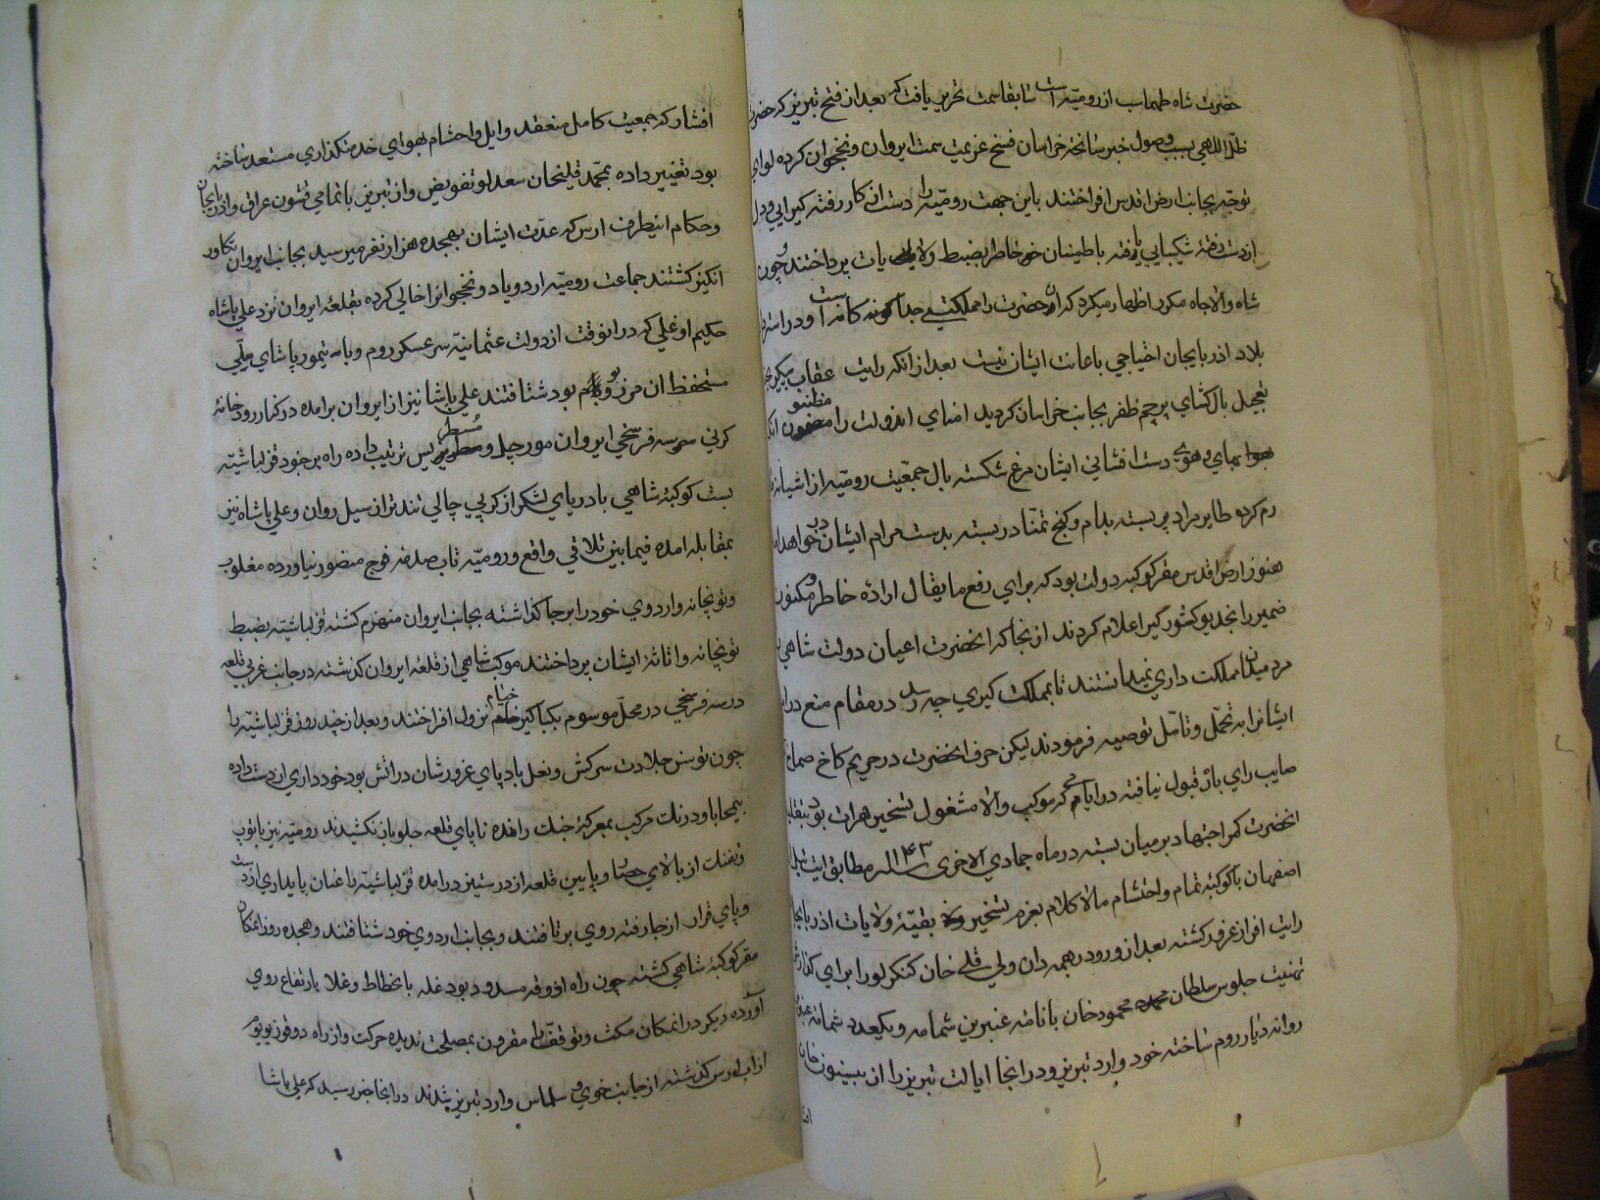 حضرت شاه طهماسب از رومیّه است سابقا سمت تحریر یافت که بعد از فتح تبریز که حضرت
ظل اللهی بسبب وصول خبر سانحهٔ خراسان فسخ عزیمت سمت ایروان و نخجوان کرده لوای
توجّه بجانب ارض اقدس افراختند باین جهت رومیّه را دست از کار رفته گیرایی و دل
از دست رفته شکیبایی یافته باطمینان خاطر بضبط ولایات پرداختند و چون
شاه والاجاه مکرر اظهار میکرد که آن حضرت را مملکتی جداگونه کافیست و در استرداد
بلاد اذربایجان احتیاجی باعانت ایشان نیست بعد از آنکه رایت عقاب پیکر
بال کشای پرچم ظفر بجانب خراسان کردید امنای ایندولت را مظنون
بهوای دست افشانی ایشان مرغ شکسته بال جمعیّت رومیّه از اشیانه
رم کرده طایر مراد پر بسته بدام و کنج تمنّا در بسته بدست مرام ایشان در خواهد
هنوز ارض اقدس مقر کوکبه دولت بود که برای رفع ما یقال ارادهٔ خاطر و مکنون
ضمیر را بخدیو کشور گیر اعلام کردند از نجا که انحضرت اعیان دولت شاهی
مرد میدان مملکت داری نمیدانستند تا بمملکت گیری چه رسد در مقام منع در
ایشانرا به تحمّل و تامّل توصیه فرمودند لیکن حرف انحضرت در حریم کاخ صماخ
صایب رای بار قبول نیافته در ایامی که موکب والا مشغول تسخیر هرات بود
انحضرت کمر اجتهاد بر میان بسته در ماه جمادی الاخری سنه ۱۱۴۳ مطابق ایت ئیل
اصفهان با کوکبه تمام و احتشام مالاکلام بعزم تسخیر بقیّهٔ ولایات اذربایجان
رایت افراز غرور کشته بعد از ورود بهمدان ولی قلی خان کنکرلو را برای
تهنیت جلوس سلطان محمود خان با نامهٔ عنبرین شمامه و یکعدد شمامه عنبر
روانه دیار روم ساخته خود وارد تبریز و در انجا ایالت تبریز را از بیستون خان
افشار که جمعیت کامل منعقد و ایل و احشام بهوای خدمتکذاری مستعد ساخته
بود تغییر داده بمحمّد قلیخان سعدلو تفویض و از تبریز با تمامی قشون عراق و اذربایجان
و حکام انیطرف ارس که عدّت ایشان بهجده هزار نفر میرسید بجانب ایروان تکاور
انکیز کشتند جماعت رومیّه اردوباد و نخجوانرا خالی کرده بقلعه ایروان نزد علی پاشاه
حکیم اوغلی که در انوقت از دولت عثمانیّه سر عسکر روم و با تیمور پاشای ملّی
مستحفظ ان مرز و بوم بود شتافتند علی پاشا نیز از ایروان برامده در کنار رودخانه
کرنی سر سه فرسخی ایروان مورچل و مسطریس ترتیب داده راه بر جنود قزلباشیّه
بست کوکبه شاهی با دریای لشکر از کرپی چالی تند تر از سیل روان و علی پاشاه نیز
بمقابله امده فیمابین تلاقی واقع و رومیّه تاب صدمه فوج منصور نیاورده مغلوب
و توپخانه و اردوی خود را بر جا گذاشته بجانب ایروان منهزم کشته قزلباشیّه بضبط
توپخانه و اثاثهٔ ایشان پرداختند موکب شاهی از قلعه ایروان کذشته در جانب غربی قلعه
در سه فرسخی در محلّ موسوم بکباکیز خیام نزول افراختند و بعد از چند روز قزلباشیّه را
چون توسن جلادت سرکش و نعل باد پای غرورشان در اتش بود خود داری از دست داده
بیمحابا و درنک مرکب بمعرکهٔ جنک رانده تا پای قلعه جلو باز نکشیدند رومیّه نیز با توپ
و تفنک از بالای حصار و پایین قلعه از در ستیز درامده قزلباشیّه را عنان پایداری از دست
و پای قرار از جا رفته روی بر تافتند و بجانب اردوی خود شتافتند و هجده روز انمکان
مقر کوکبهٔ شاهی کشته چون راه اذوقه مسدود بود غله بانحطاط و غلا بارتفاع روی
آورده دیکر در انمکان مکث و توقف را مقرون بمصلحت ندیده حرکت و از راه دوقوز یولوم
از اب ارس کذشته از جانب خوی و سلماس وارد تبریز شدند در انجا خبر رسید که علی پاشا